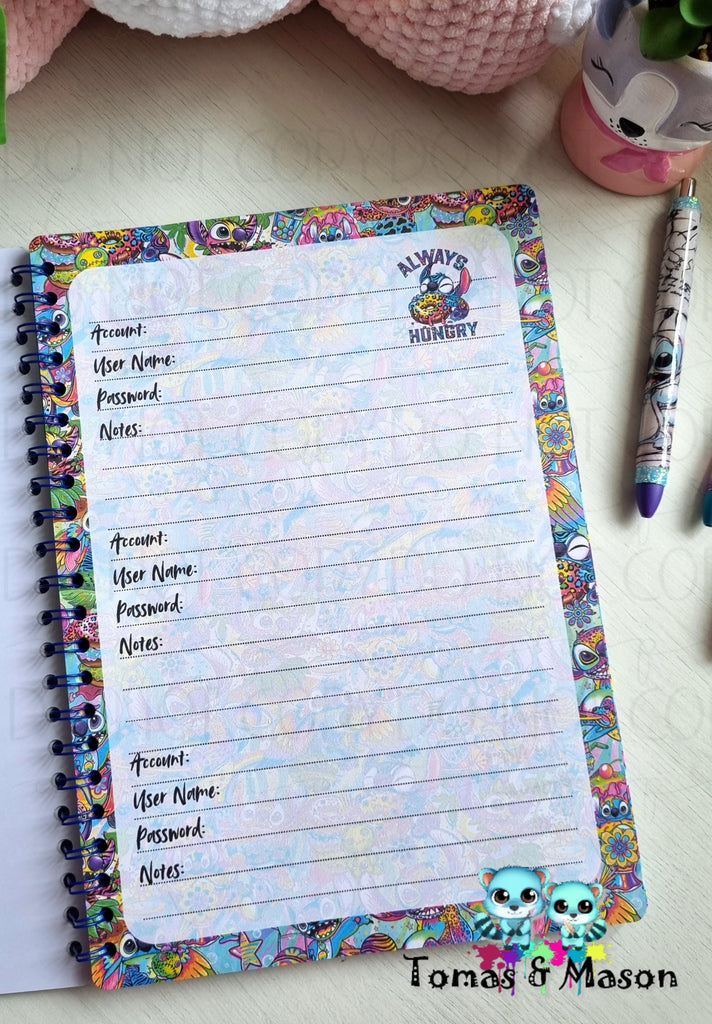 ALWAYS
HUNGRY
Account:
User Name:
Password:
Notes:
Account:
User Name:
Password:
Notes:
Account:
User Name:
Password:
Notes:
Tomas & Mason